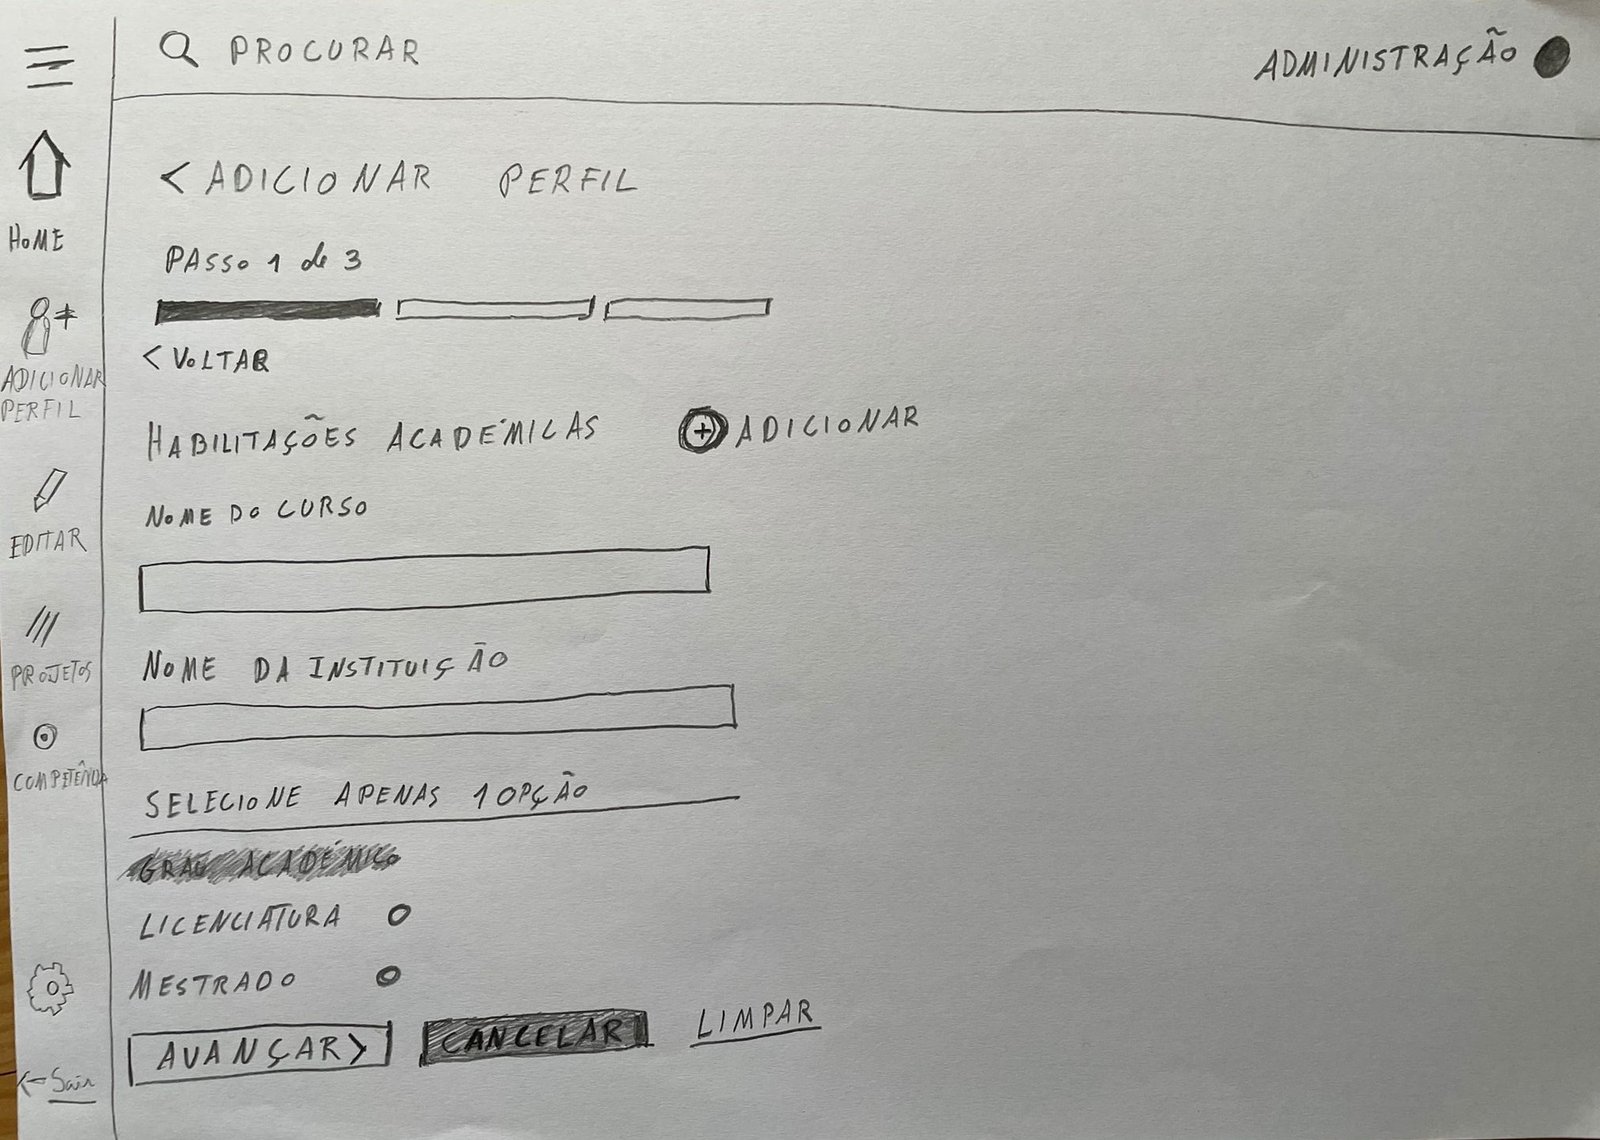 PROCURAR
ADMINISTRAÇÃO
HOME
ADICIONAR
PERFIL
EDITAR
PROJETOS
COMPETÊNCIA
← Sair
< ADICIONAR PERFIL
PASSo 1 de 3
< VoLTAR
HABILITAÇÕES ACADÉMICAS
+ ADICIONAR
NoME Do CURSO
NoME DA INSTITUIÇÃO
SELECIONE APENAS 1 OPÇÃO
GRAU ACADÉMICO
LICENCIATURA
MESTRADO
AVANÇAR>
CANCELAR
LIMPAR